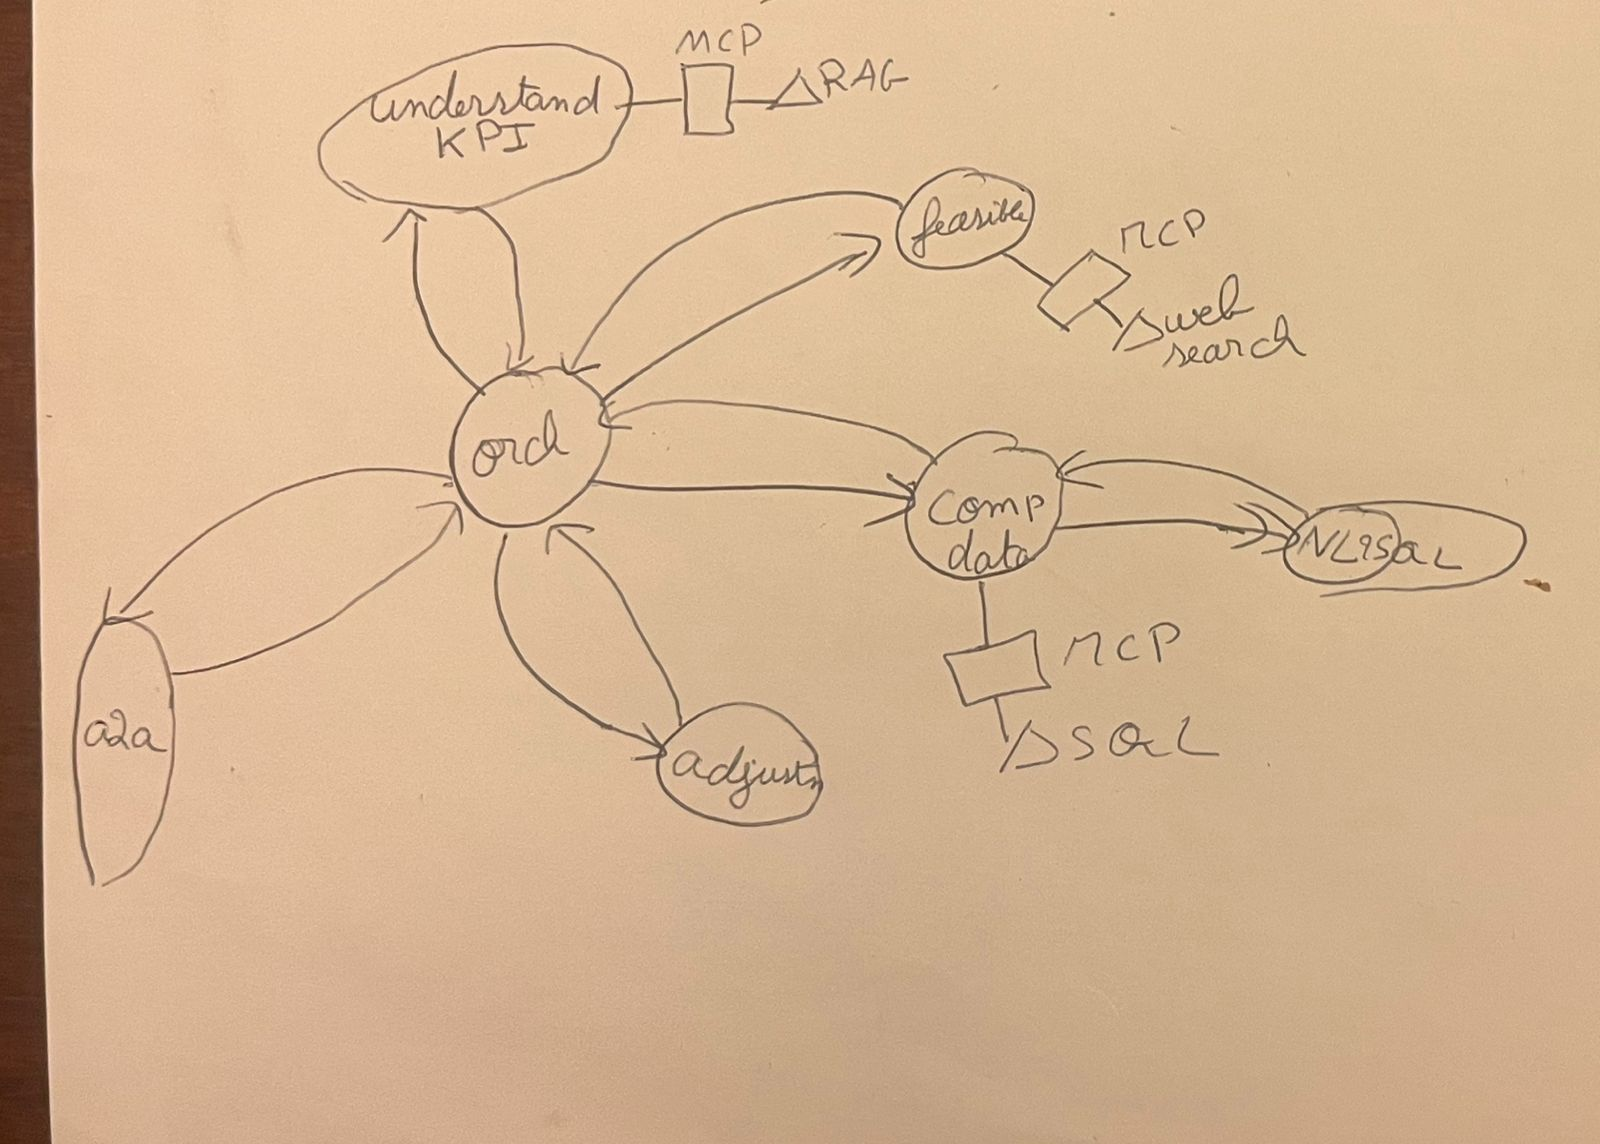 MCP
RAG
understand
KPI
feasible
MCP
web
search
orch
comp
data
NL2SQL
MCP
SQL
a2a
adjust